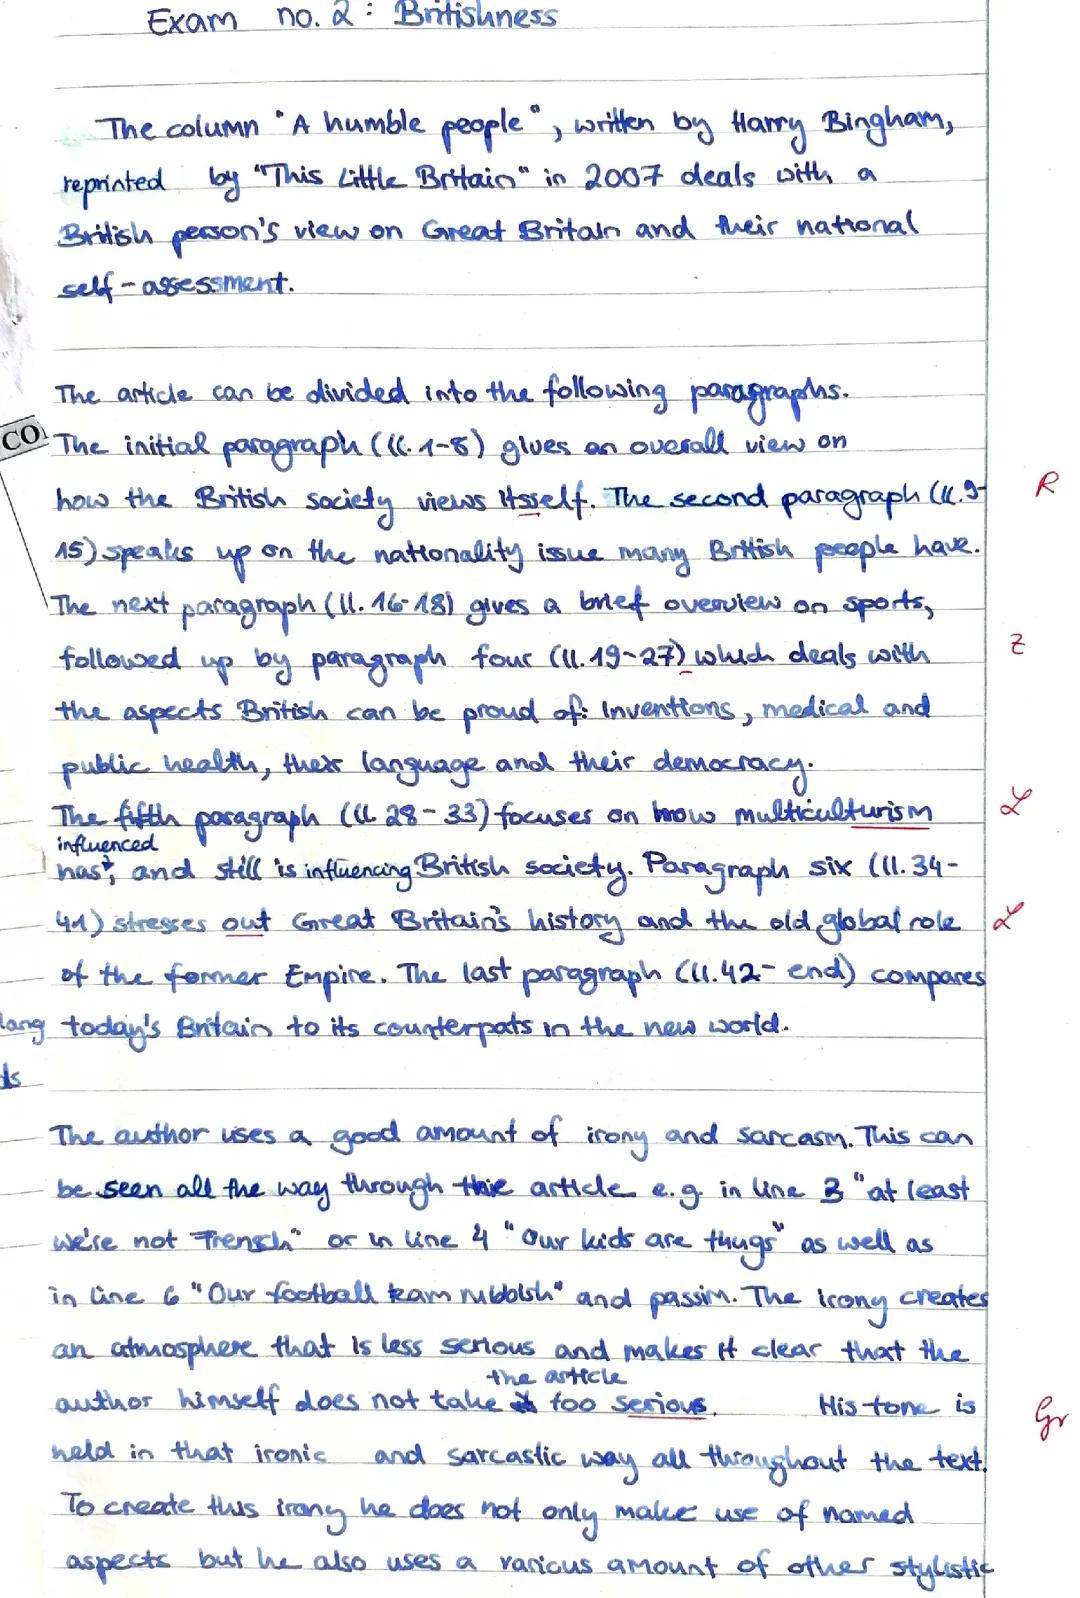 Exam no. 2: Britishness
The column "A humble people", written by Harry Bingham,
reprinted by "This Little Britain" in 2007 deals with a
British person's view on Great Britain and their national
self-assessment.
The article can be divided into the following paragraphs.
CO
The initial paragraph (ll. 1-8) gives an overall view on
how the British society views itsself. The second paragraph (ll. 9- R
15) speaks up on the nationality issue many British people have.
The next paragraph (ll. 16-18) gives a brief overview on sports,
followed up by paragraph four (ll. 19-27) which deals with Z
the aspects British can be proud of: Inventions, medical and
public health, their language and their democracy.
The fifth paragraph (ll 28-33) focuses on how multiculturism L
influenced
has, and still is influencing British society. Paragraph six (ll. 34-
41) stresses out Great Britain's history and the old global role L
of the former Empire. The last paragraph (ll. 42- end) compares
lang today's Britain to its counterpats in the new world.
ds
The author uses a good amount of irony and sarcasm. This can
be seen all the way through the article e.g. in line 3 "at least
we're not French" or in line 4 "Our kids are thugs" as well as
in line 6 "Our football team rubbish" and passim. The irony creates
an atmosphere that is less serious and makes it clear that the
the article
author himself does not take too serious. His tone is Gr
held in that ironic and sarcastic way all throughout the text.
To create this irony he does not only make use of named
aspects but he also uses a various amount of other stylistic